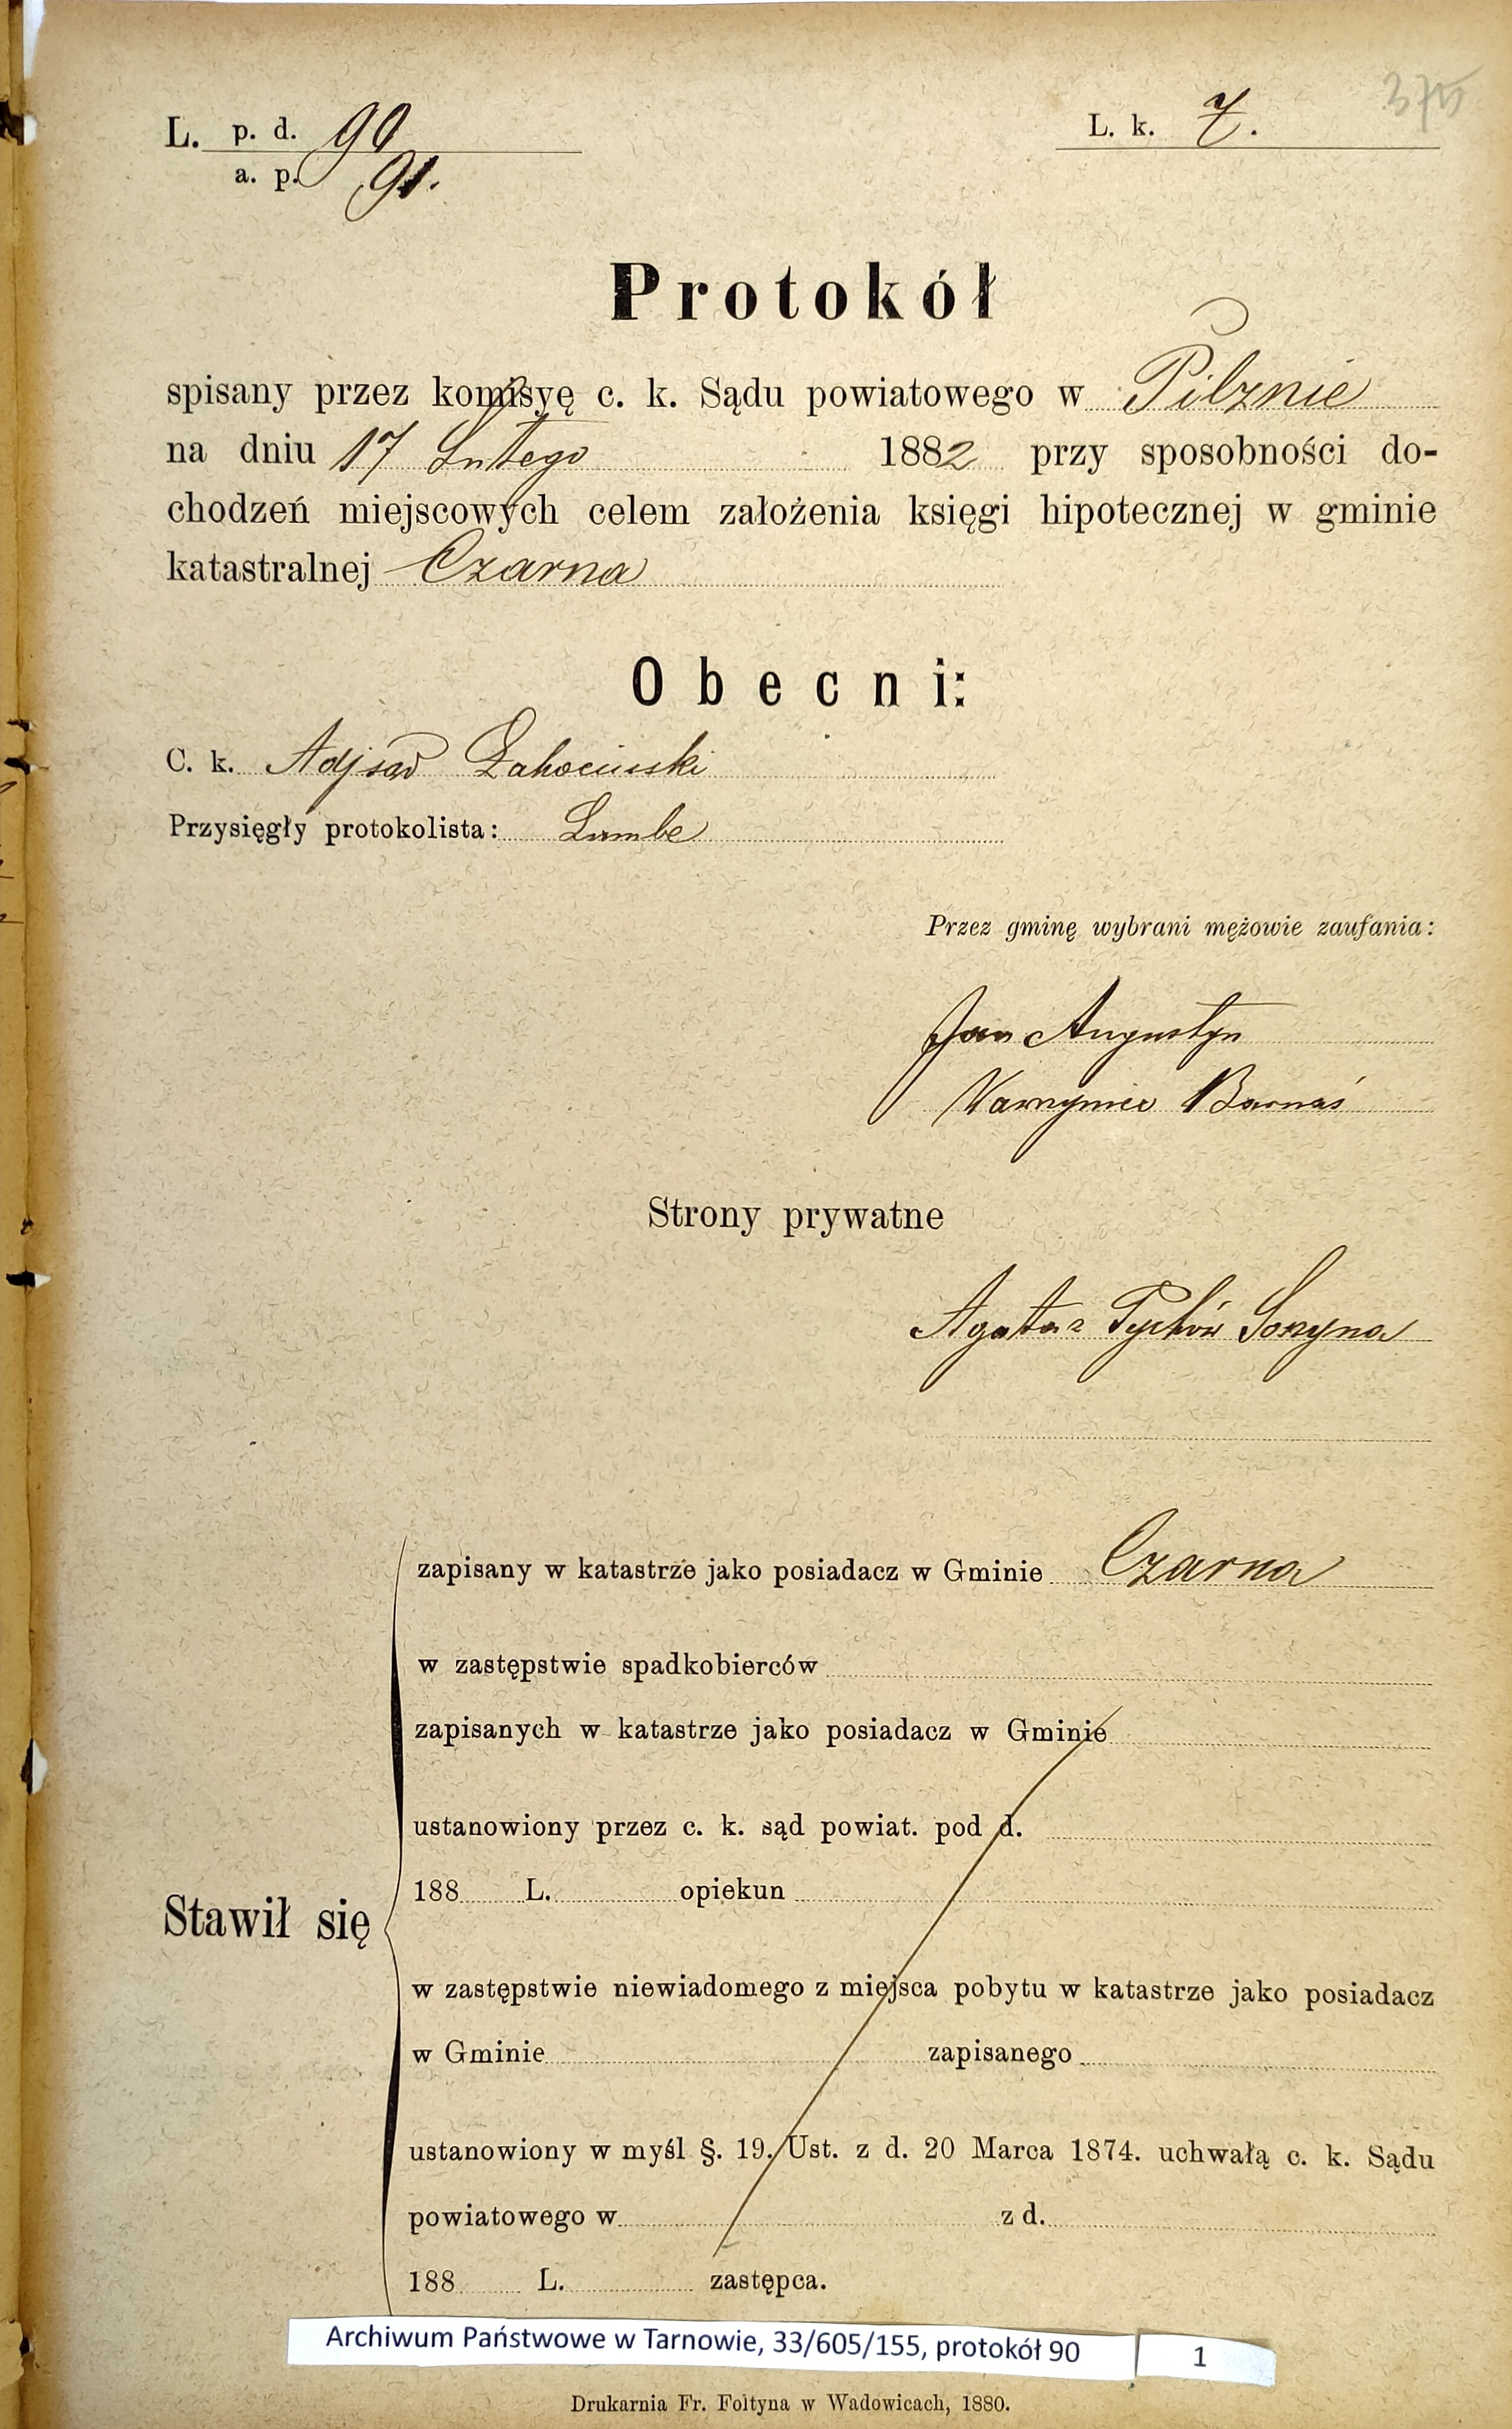 375
L. p. d. 90
a. p. 91.
L. k. 7.
Protokół
spisany przez komisyę c. k. Sądu powiatowego w Pilznie
na dniu 17 Lutego 1882 przy sposobności do-
chodzeń miejscowych celem założenia księgi hipotecznej w gminie
katastralnej Czarna
Obecni:
C. k. Adj sąd
Przysięgły protokolista:
Przez gminę wybrani mężowie zaufania:
Jan Augustyn
Wawrzyniec Barnaś
Strony prywatne
Agata z Soszyna
zapisany w katastrze jako posiadacz w Gminie Czarna
w zastępstwie spadkobierców
zapisanych w katastrze jako posiadacz w Gminie
ustanowiony przez c. k. sąd powiat. pod d.
188 L. opiekun
Stawił się
w zastępstwie niewiadomego z miejsca pobytu w katastrze jako posiadacz
w Gminie zapisanego
ustanowiony w myśl §. 19. Ust. z d. 20 Marca 1874. uchwałą c. k. Sądu
powiatowego w z d.
188 L. zastępca.
Archiwum Państwowe w Tarnowie, 33/605/155, protokół 90 1
Drukarnia Fr. Foltyna w Wadowicach, 1880.